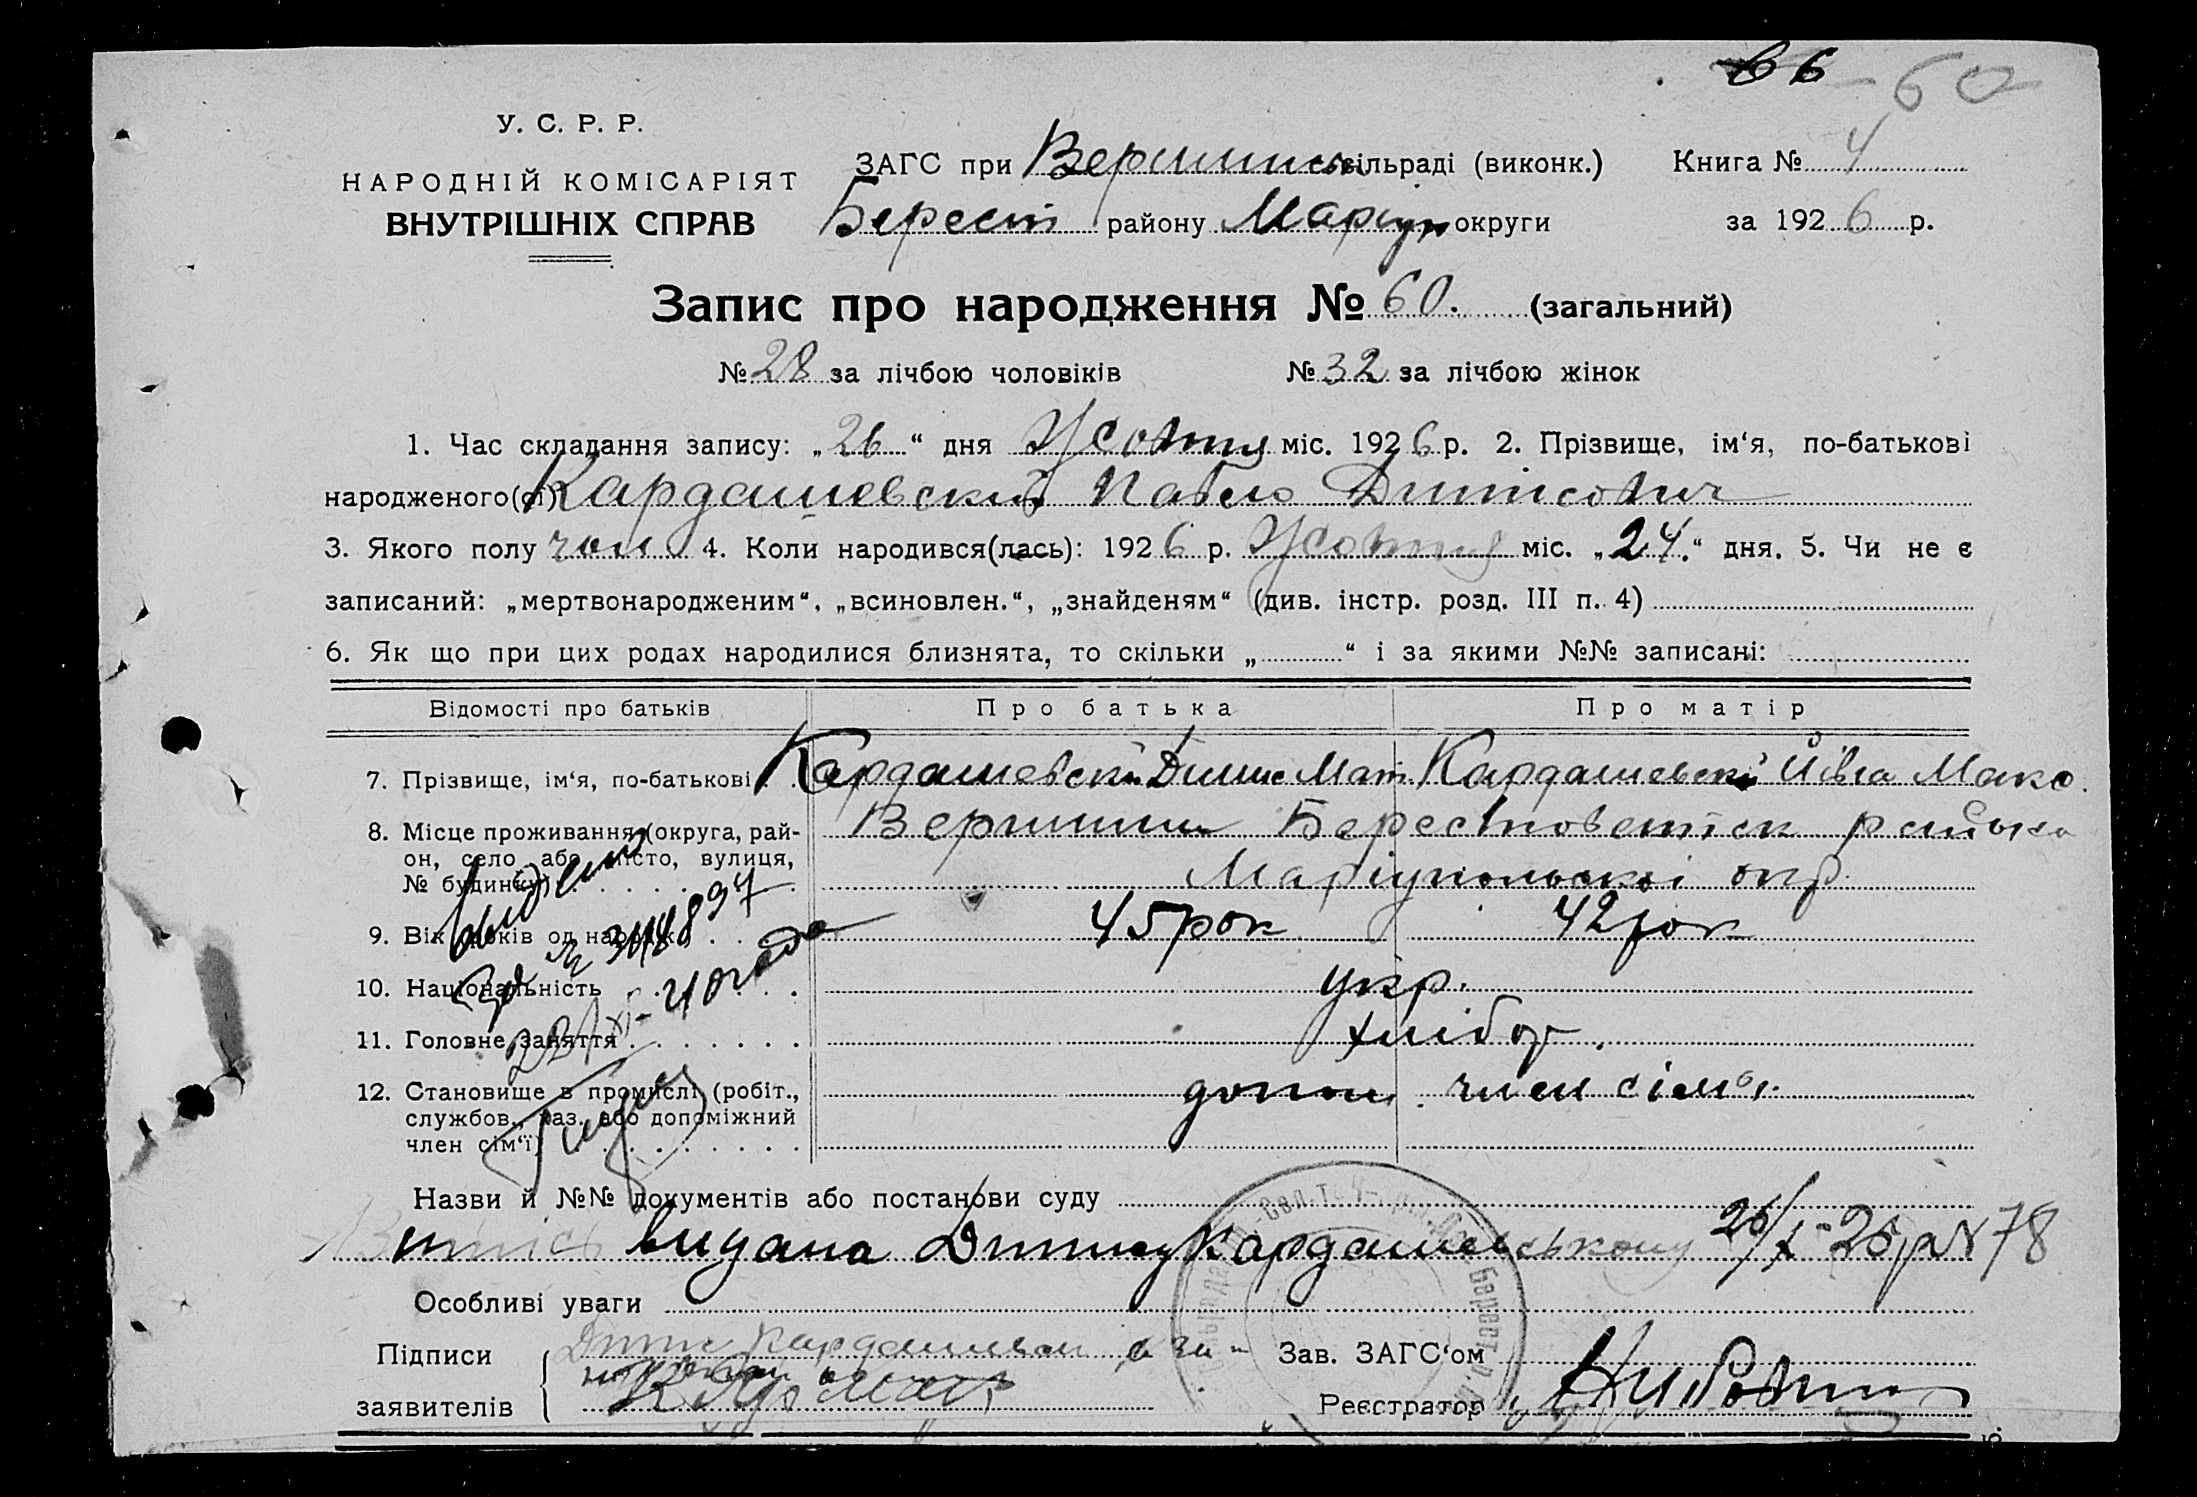 66 - 60
У. С. Р. Р.
НАРОДНІЙ КОМІСАРІЯТ
ВНУТРІШНІХ СПРАВ
ЗАГС при сільраді (виконк.) Книга № 4
Берест району Маріуп округи за 1926 р.
Запис про народження № 60. (загальний)
№ 28 за лічбою чоловіків № 32 за лічбою жінок
1. Час складання запису: „26“ дня Жовтня міс. 1926 р. 2. Прізвище, ім‘я, по-батькові
народженого(ої) Кардашевский Павло
3. Якого полу чол 4. Коли народився(лась): 1926 р. Жовтня міс. „24.“ дня. 5. Чи не є
записаний: „мертвонародженим“, „всиновлен.“, „знайденям“ (див. інстр. розд. III п. 4)
6. Як що при цих родах народилися близнята, то скільки „ “ і за якими №№ записані:
Відомості про батьків Про батька Про матір
7. Прізвище, ім‘я, по-батькові Кардашевски Мат. Кардашевск Макс.
8. Місце проживання (округа, рай-
он, село або місто, вулиця,
№ будинку)
Маріупольскої окр
9. Вік років од народж. 45 рок 42 рок
10. Національність укр.
11. Головне заняття хлібор.
12. Становище в промислі (робіт.,
службов., хаз. або допоміжний
член сім‘ї) допом. член сімьі
видано
Назви й №№ документів або постанови суду
видана Кардашевському 26/X-26 р № 78
Особливі уваги
Підписи
заявителів
Зав. ЗАГС‘ом
Реєстратор